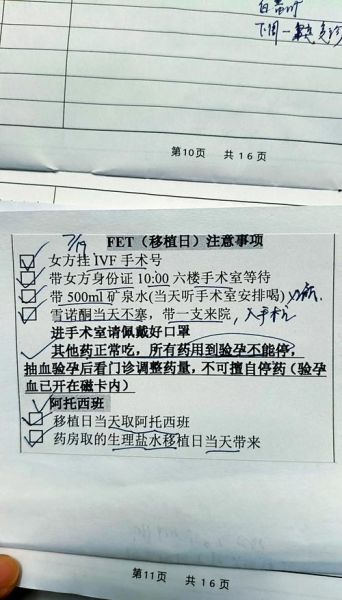 下周一
第10页 共16页
7/19
FET（移植日）注意事项
女方挂 IVF 手术号
带女方身份证 10:00 六楼手术室等待
带 500ml 矿泉水(当天听手术室安排喝)
雪诺酮当天不塞，带一支来院，入手术室
进手术室请佩戴好口罩
其他药正常吃，所有药用到验孕不能停，
抽血验孕后看门诊调整药量，不可擅自停药（验孕
血已开在磁卡内）
阿托西班
移植日当天取阿托西班
药房取的生理盐水移植日当天带来
第11页 共16页